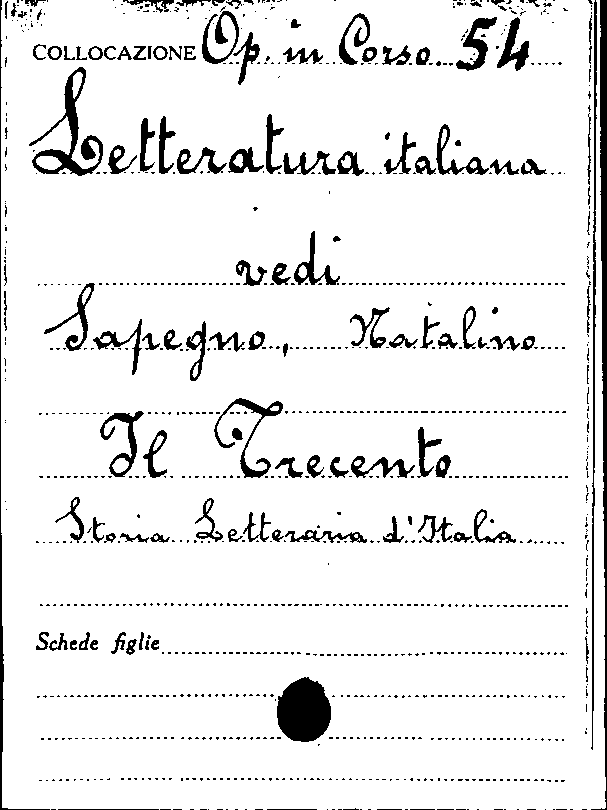 COLLOCAZIONE Op. in Corso. 54
Letteratura italiana
vedi
Sapegno, Natalino
Il Trecento
Storia Letteraria d'Italia
Schede figlie